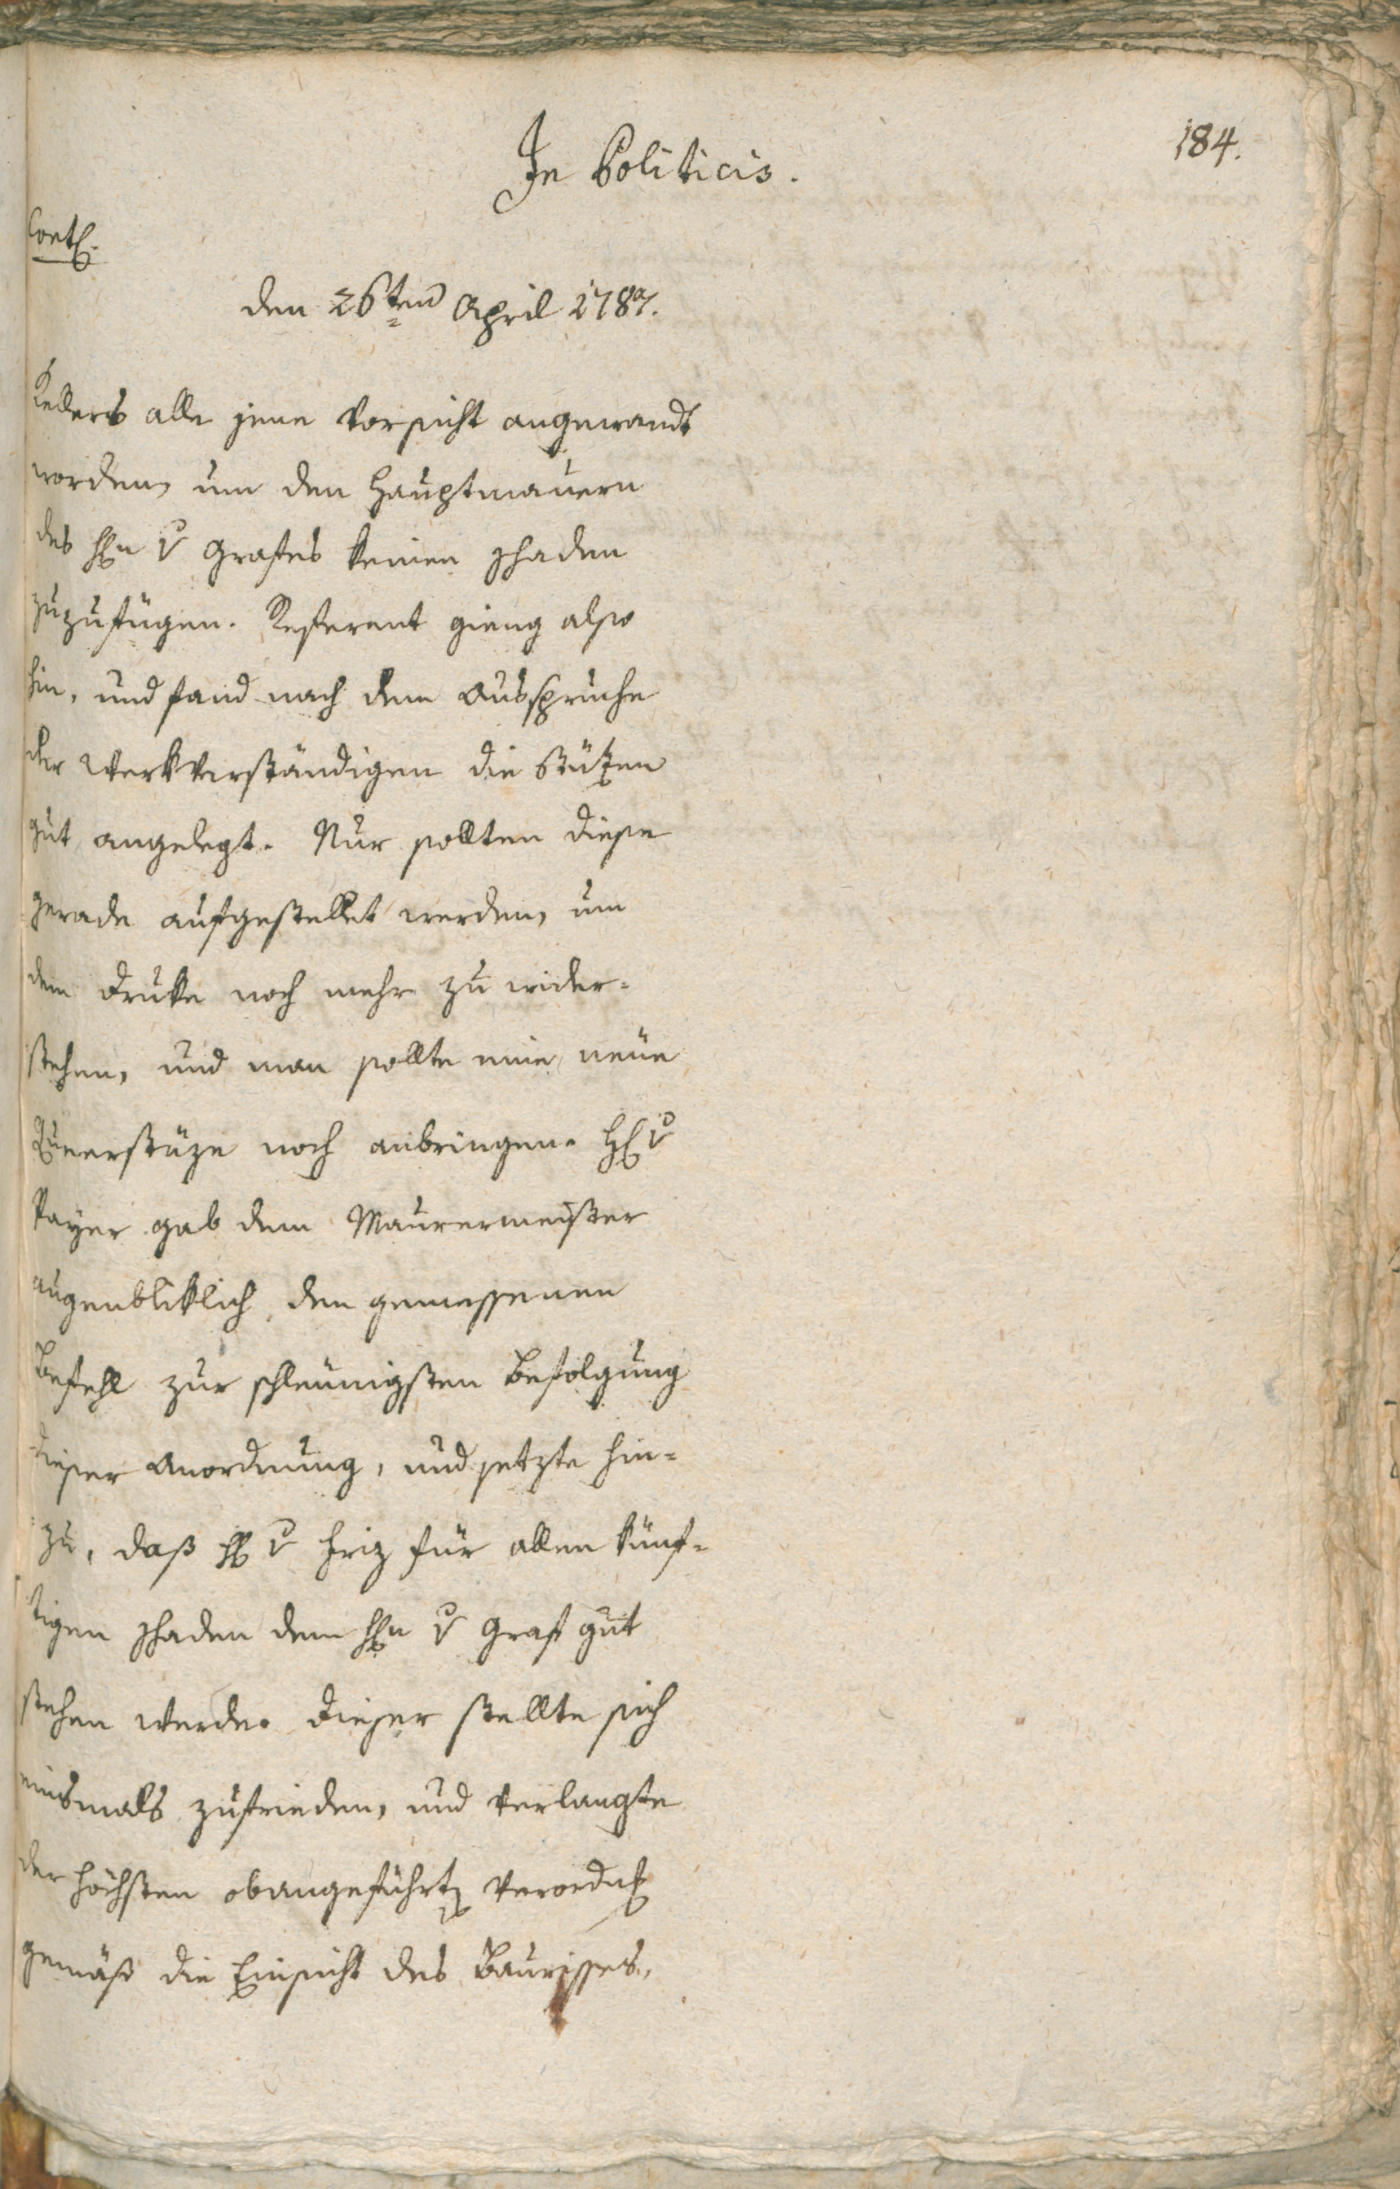 184.
In Politicis.
Cont.
den 26ten April 1787.
Kellers alle jene Vorsicht angewandt
worden, um den Hauptmauern
des Hn v Grafes keinen Schaden
zuzufügen. Referent gieng also
hin, und fand nach dem Ausspruche
der Werkverständigen die Stützen
gut angelegt. Nur sollten diese
gerade aufgestellet werden, um
dem Druke noch mehr zu wider-
stehen, und man sollte eine neue
Querstüze noch anbringen. H v
Payer gab dem Maurermeister
augenbliklich den gemessenen
Befehl zur schleunigsten Befolgung
dieser Anordnung, und setzte hin-
zu, daß H v Friz für allen künf-
tigen Schaden dem Hn v Graf gut
stehen werde. Dieser stellte sich
einsmals zufrieden, und verlangte
der höchsten obangeführt Verordn
gemäß die Einsicht des Baurisses,